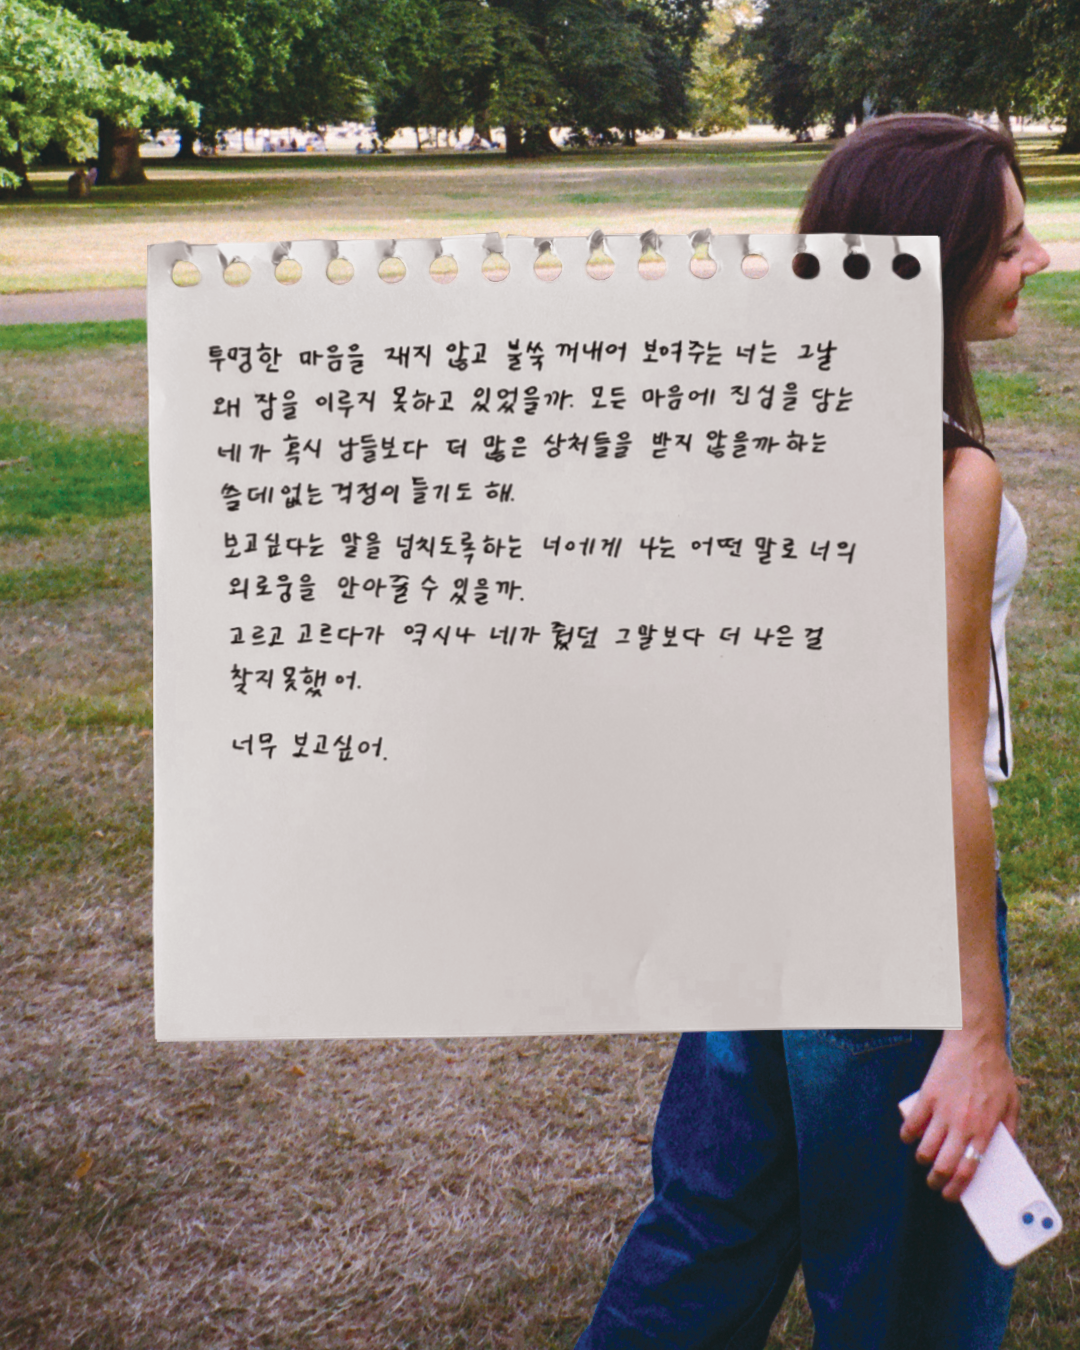 투명한 마음을 재지 않고 불쑥 꺼내어 보여주는 너는 그날
왜 잠을 이루지 못하고 있었을까. 모든 마음에 진심을 담는
네가 혹시 남들보다 더 많은 상처들을 받지 않을까 하는
쓸데없는 걱정이 들기도 해.
보고싶다는 말을 넘치도록 하는 너에게 나는 어떤 말로 너의
외로움을 안아줄 수 있을까.
고르고 고르다가 역시나 네가 줬던 그 말보다 더 나은 걸
찾지 못했어.
너무 보고싶어.